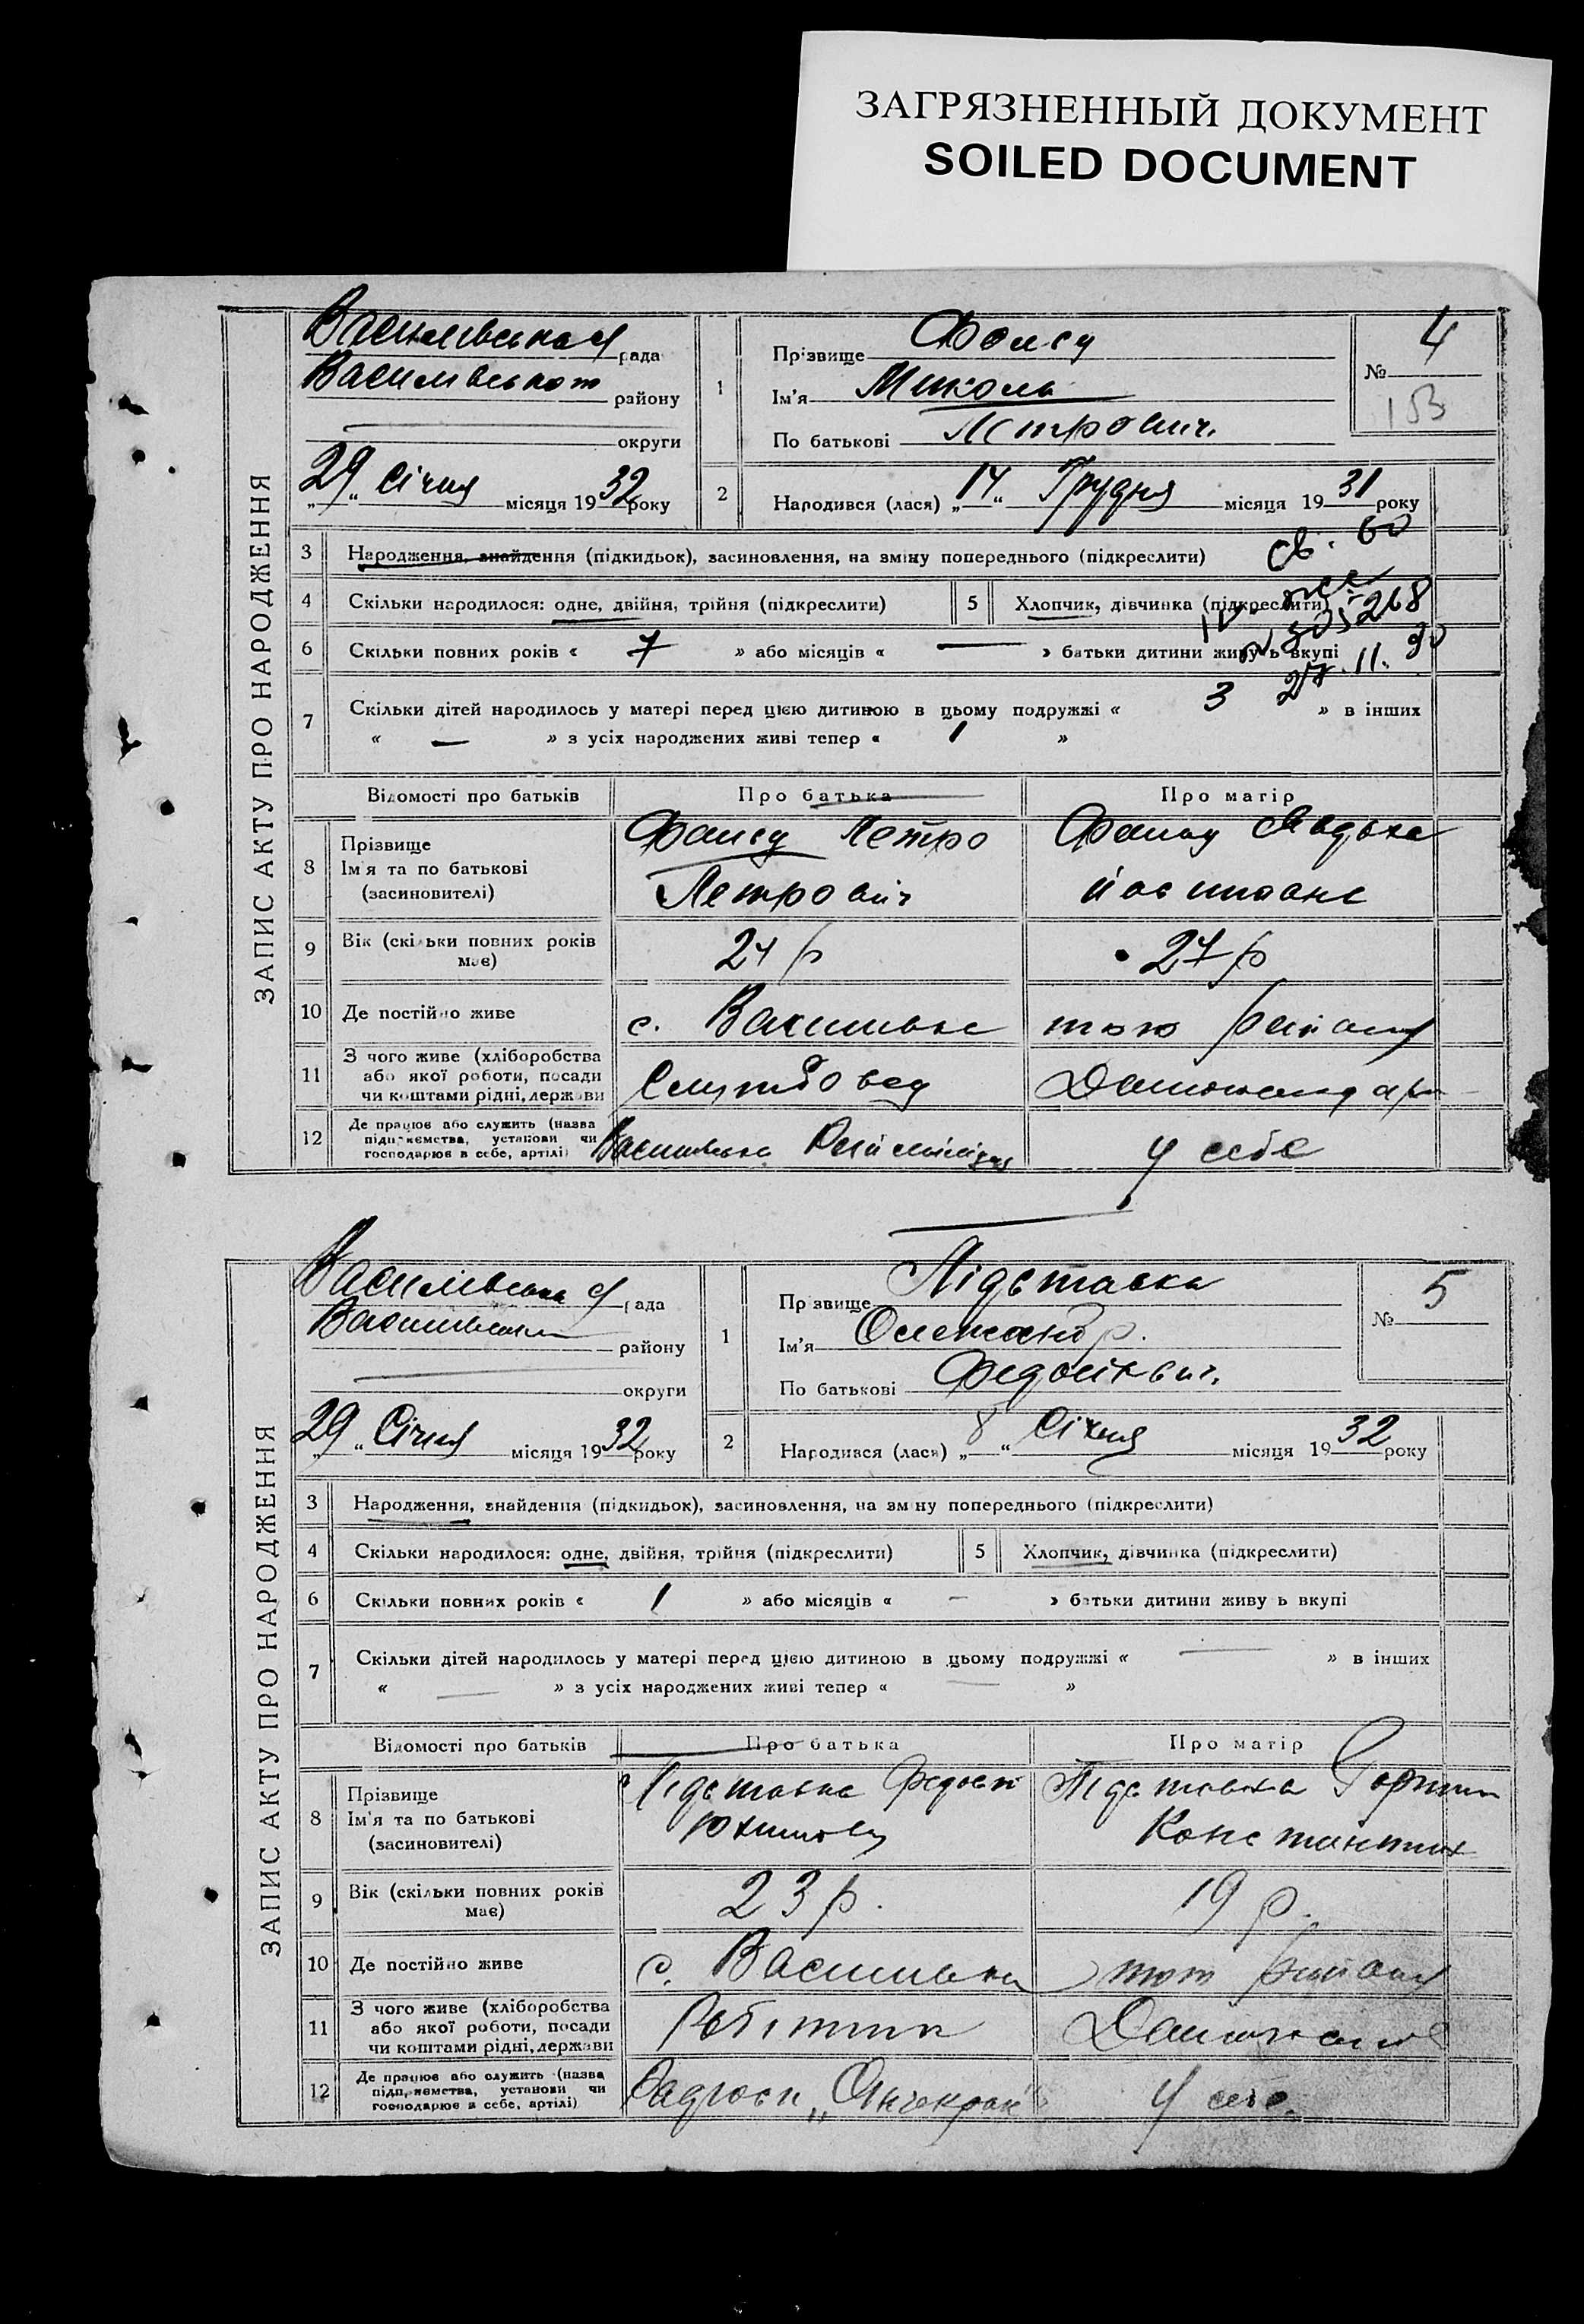 ЗАГРЯЗНЕННЫЙ ДОКУМЕНТ
SOILED DOCUMENT
ЗАПИС АКТУ ПРО НАРОДЖЕННЯ
Василівська рада
Василівського району
округи
„29“ Січня місяця 1932 року
1
Прізвище
Ім'я Микола
По батькові Петрович.
№ 4
153
2 Народився (лася) „14“ Грудня місяця 1931 року
3 Народження, знайдення (підкидьок), засиновлення, на зміну попереднього (підкреслити)
св. во
4 Скільки народилося: одне, двійня, трійня (підкреслити)
5 Хлопчик, дівчинка (підкреслити)
268
6 Скільки повних років « 7 » або місяців « — » батьки дитини живуть вкупі
27.11.90
7 Скільки дітей народилось у матері перед цією дитиною в цьому подружжі « 3 » в інших
« — » з усіх народжених живі тепер « 1 »
Відомості про батьків Про батька Про матір
8 Прізвище
Ім'я та по батькові
(засиновителі)
Петро
Петрович
9 Вік (скільки повних років має)
24 р
27 р
10 Де постійно живе
с. Василівка
того району
11 З чого живе (хліборобства
або якої роботи, посади
чи коштами рідні, держави
Службовец
12 Де працює або служить (назва
підприємства, установи чи
господарює в себе, артілі)
Василівська
у себе
ЗАПИС АКТУ ПРО НАРОДЖЕННЯ
Василівська рада
Василівського району
округи
„29“ Січня місяця 1932 року
1
Прізвище Підставка
Ім'я Олександр.
По батькові Федосійович.
№ 5
2 Народився (лася) „8“ Січня місяця 1932 року
3 Народження, знайдення (підкидьок), засиновлення, на зміну попереднього (підкреслити)
4 Скільки народилося: одне, двійня, трійня (підкреслити)
5 Хлопчик, дівчинка (підкреслити)
6 Скільки повних років « 1 » або місяців « — » батьки дитини живуть вкупі
7 Скільки дітей народилось у матері перед цією дитиною в цьому подружжі « — » в інших
« — » з усіх народжених живі тепер « — »
Відомості про батьків Про батька Про матір
8 Прізвище
Ім'я та по батькові
(засиновителі)
Підставка Федосій
Підставка
9 Вік (скільки повних років має)
23 р.
19 р.
10 Де постійно живе
с. Василівка
того району
11 З чого живе (хліборобства
або якої роботи, посади
чи коштами рідні, держави
Робітник
12 Де працює або служить (назва
підприємства, установи чи
господарює в себе, артілі)
у себе.